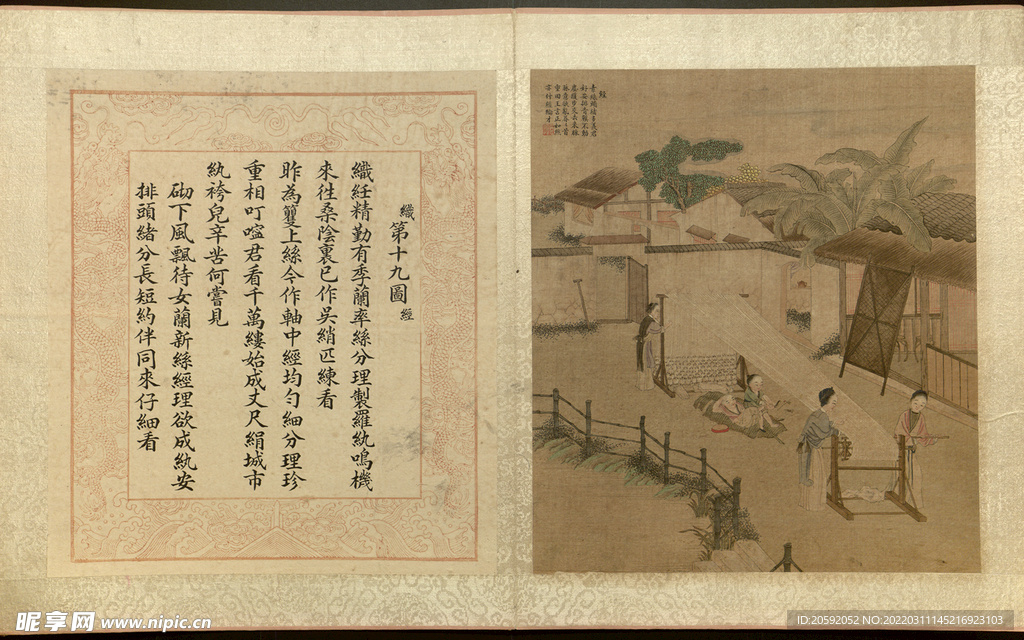 織
第十九圖 經
織紝精勤有季蘭率絲分理製羅紈鳴機
來往桑陰裏已作吳綃匹練看
昨為簟上絲今作軸中經均勻細分理珍
重相叮嚀君看千萬縷始成丈尺絹城市
紈袴兒辛苦何嘗見
砌下風飄待女蘭新絲經理欲成紈安
排頭緒分長短約伴同來仔細看
經
昵享网 www.nipic.cn
ID:20592052 NO:20220311145216923103